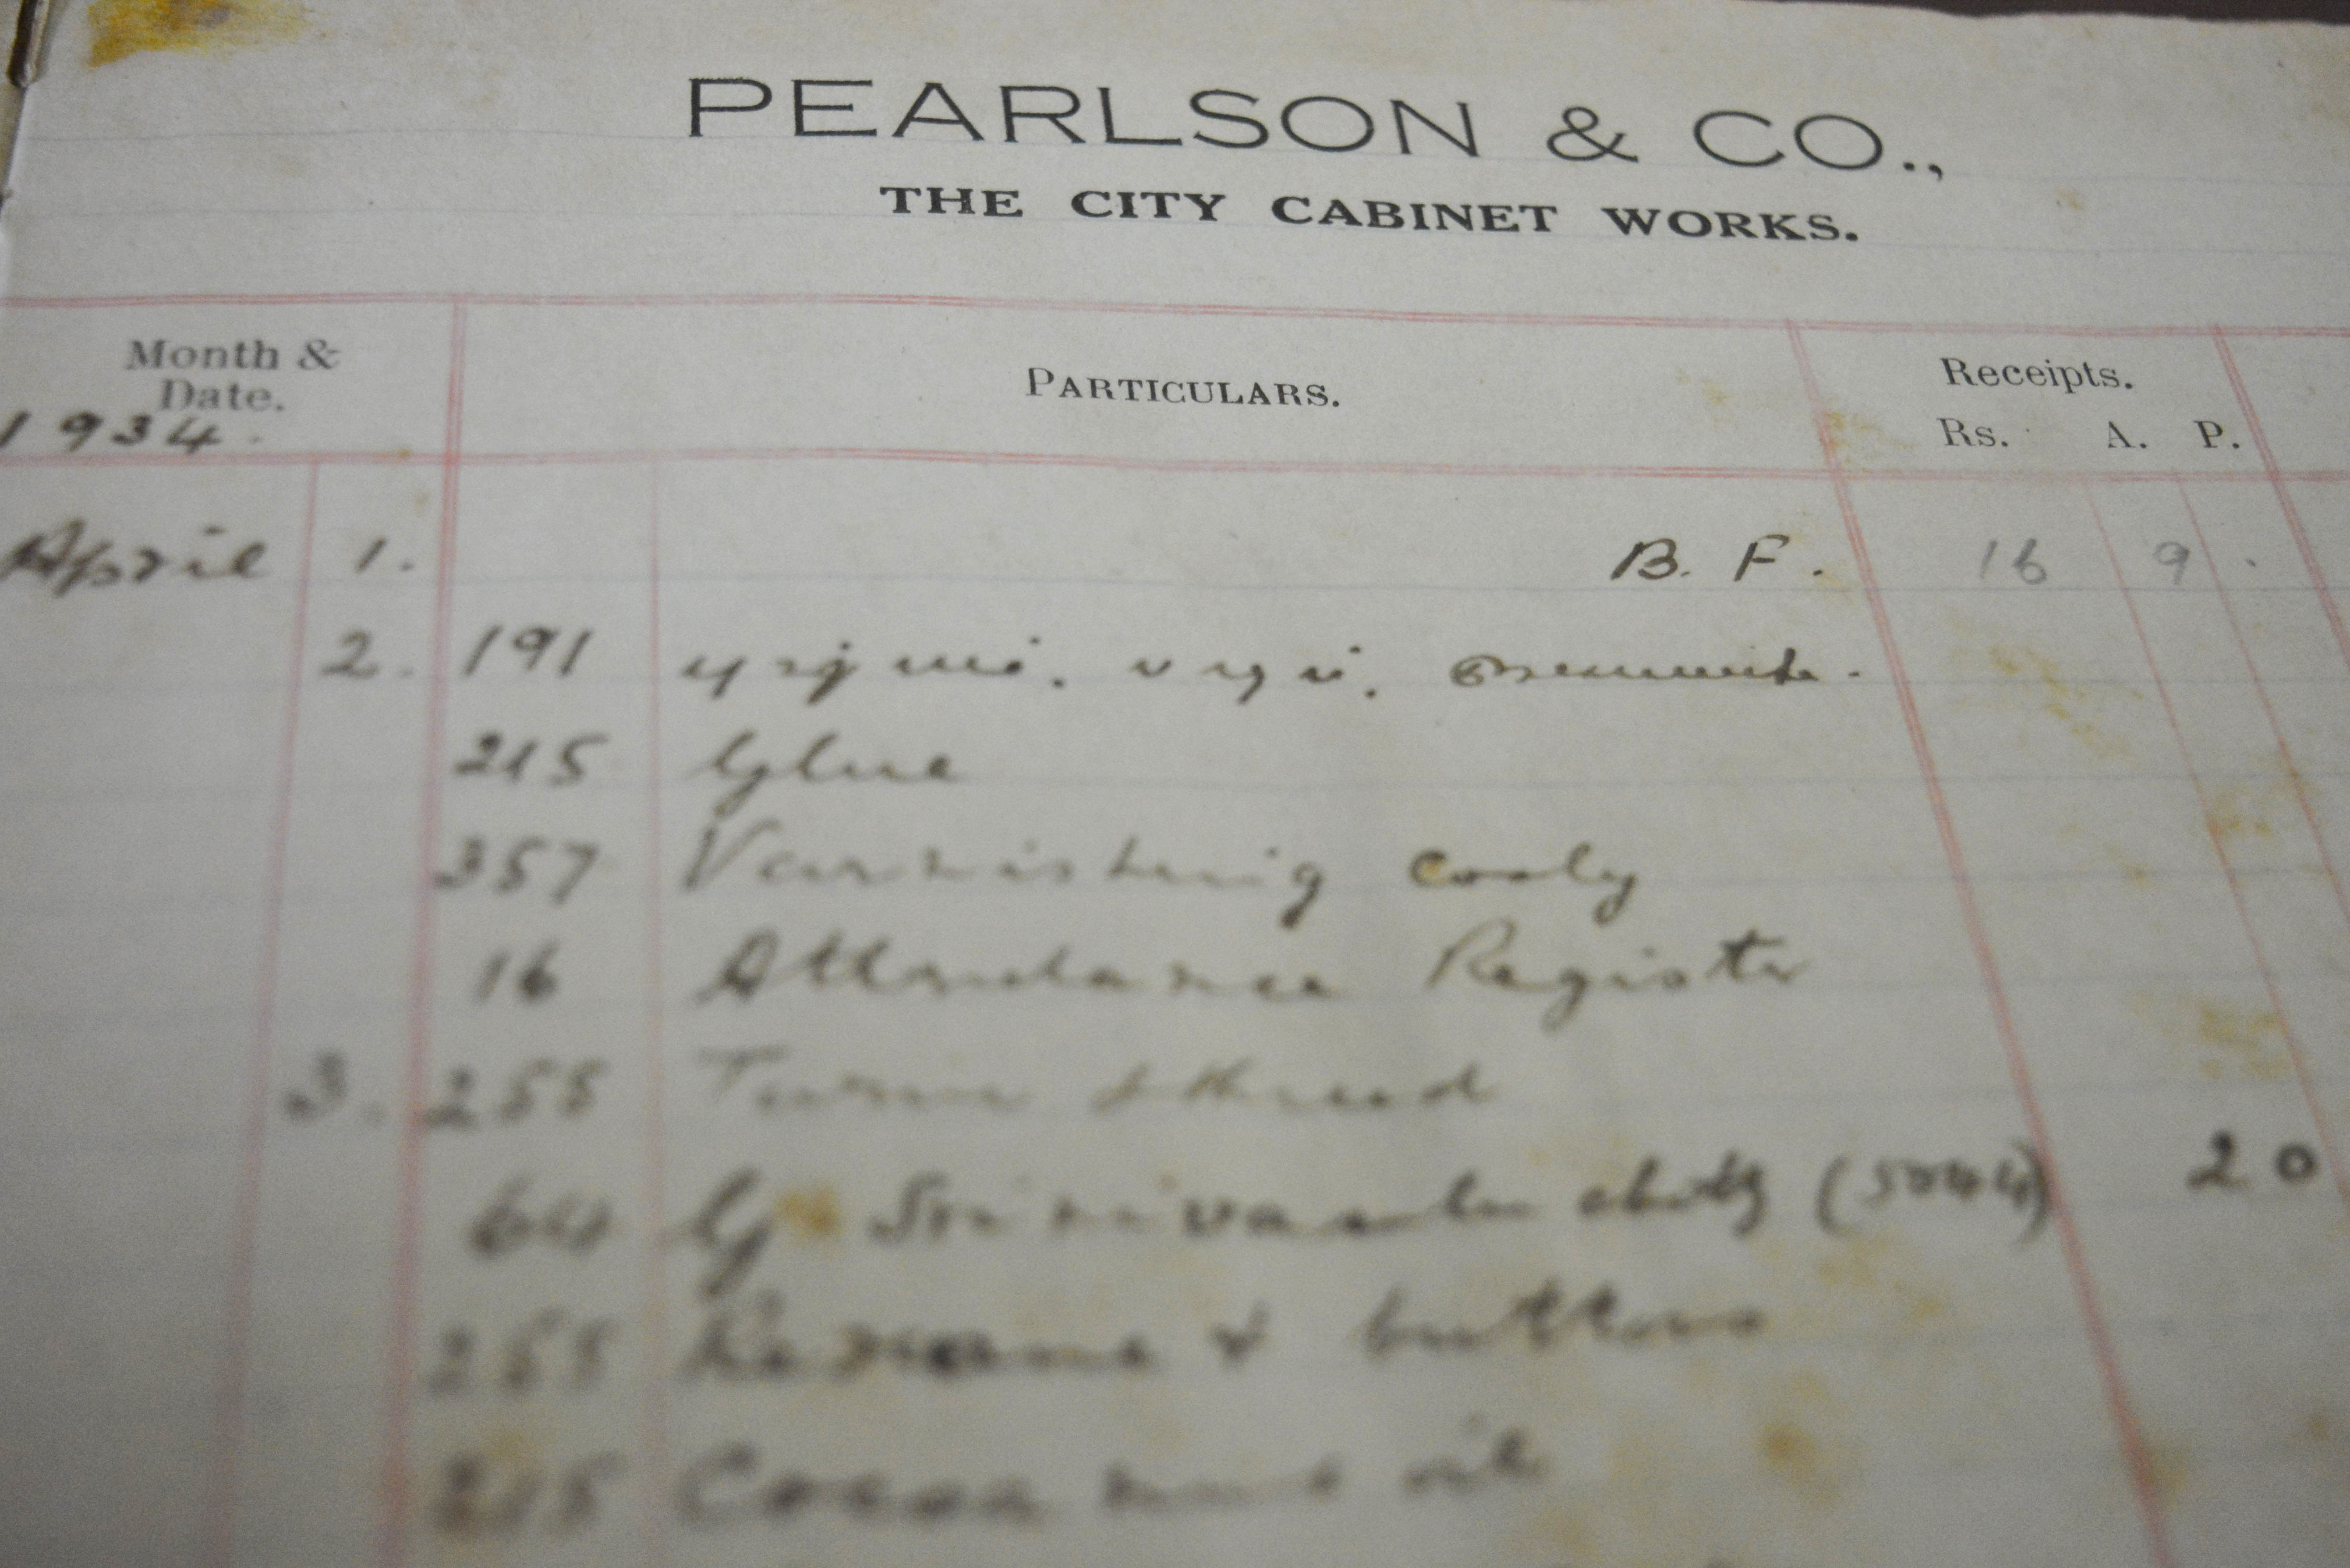 PEARLSON & CO.,
THE CITY CABINET WORKS.
Month & Date. PARTICULARS. Receipts.
1934. Rs. A. P.
April 1. B. F. 16 9 .
2. 191
215 Glue
357 Varnishing cooly
16 Attendance Register
3. 255 Twine & thread
64 G Srinivasulu chetty (5044) 20
255 & buttons
215 Cocoanut oil